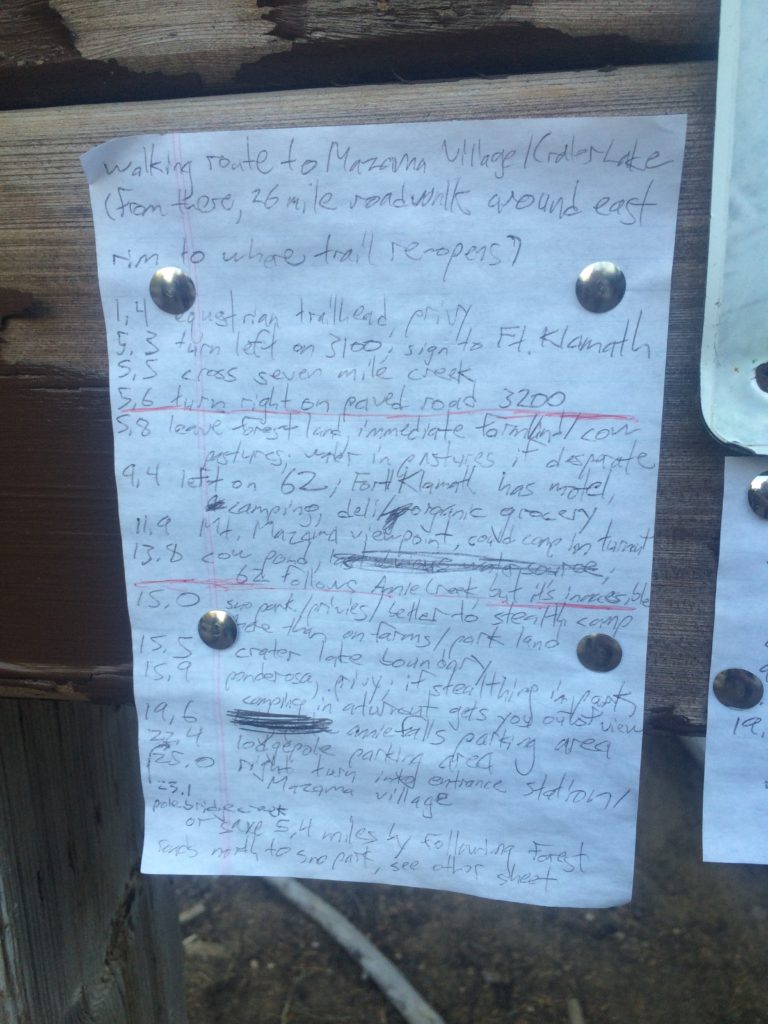 walking route to Mazama Village/Crater Lake
(from there, 26 mile roadwalk around east
rim to where trail reopens)
1,4 equestrian trailhead, privy
5,3 turn left on 3100, sign to Ft. Klamath
5,5 cross seven mile creek
5,6 turn right on paved road 3200
5,8 leave forest land immediate farmland/cow
pastures. water in pastures if desparate
9,4 left on 62; Fort Klamath has motel,
camping, deli/organic grocery
11,9 Mt. Mazama viewpoint, could camp in turnout
13,8 cow pond
62 follows Annie Creek but its inaccessible
15,0 sno park/privies/better to stealth camp
here than on farms/park land
15,5 crater lake boundary
15,9 ponderosa, privy, if stealthing in park,
camping in turnout gets you out of view
19,6 annie falls parking area
22,4 lodgepole parking area
25,0 right turn into entrance station/
Mazama village
25.1
pole bridge creek
or save 5,4 miles by following Forest
roads north to sno park, see other sheet
19,